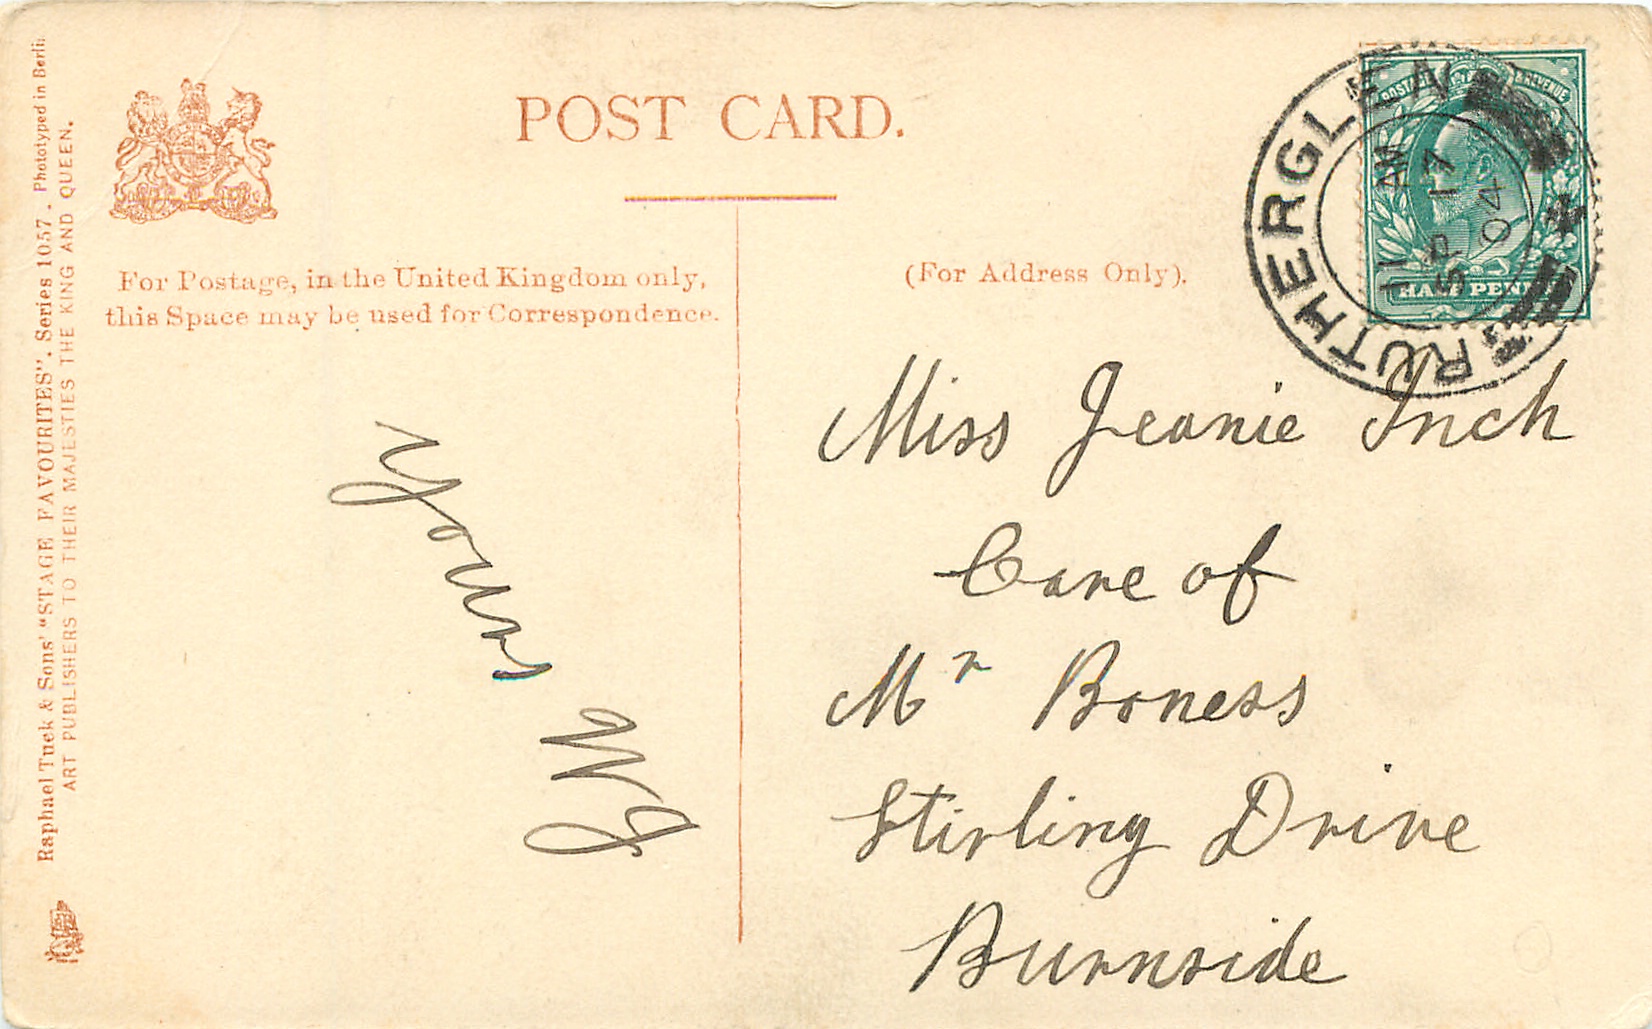 POST CARD.
For Postage, in the United Kingdom only,
this Space may be used for Correspondence.
(For Address Only).
Raphael Tuck & Sons' "STAGE FAVOURITES". Series 1057. Phototyped in Berlin
ART PUBLISHERS TO THEIR MAJESTIES THE KING AND QUEEN.
POSTAGE & REVENUE
HALF PENNY
RUTHERGLEN
11 AM
SP 17
04
Yours
Miss Jeanie Inch
Care of
Mr Boness
Stirling Drive
Burnside